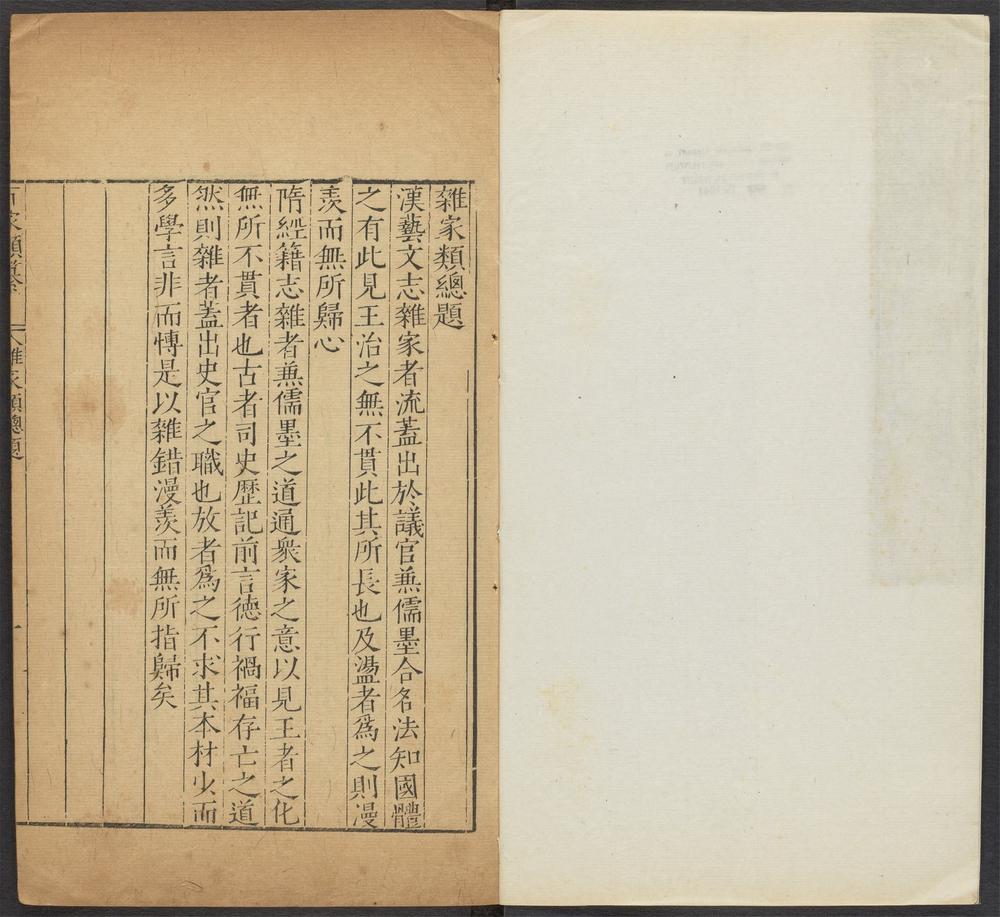 雜家類總題
漢藝文志雜家者流蓋出於議官兼儒墨合名法知國體
之有此見王治之無不貫此其所長也及盪者爲之則漫
羨而無所歸心
隋經籍志雜者兼儒墨之道通衆家之意以見王者之化
無所不貫者也古者司史歷記前言德行禍福存亡之道
然則雜者蓋出史官之職也放者爲之不求其本材少而
多學言非而愽是以雜錯漫羨而無所指歸矣
家類纂 雜家類總題 一